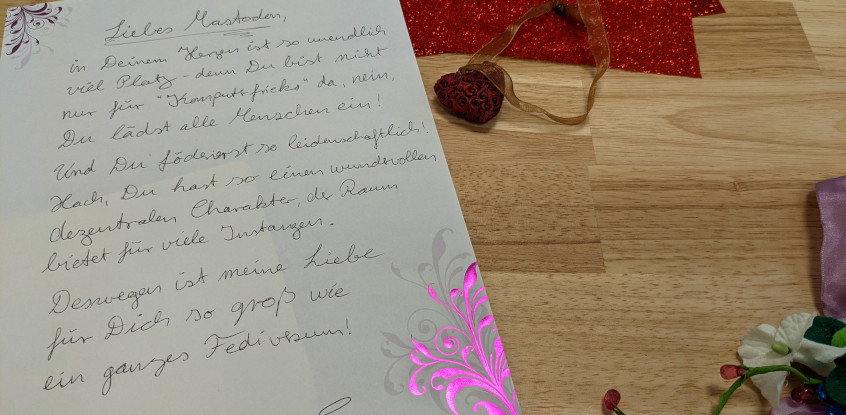 Liebes Mastodon,
in Deinem Herzen ist so unendlich
viel Platz - denn Du bist nicht
nur für "Komputerfrieks" da, nein,
Du lädst alle Menschen ein!
Und Du föderierst so leidenschaftlich!
Hach, Du hast so einen wundervollen
dezentralen Charakter, der Raum
bietet für viele Instanzen.
Deswegen ist meine Liebe
für Dich so groß wie
ein ganzes Fediversum!